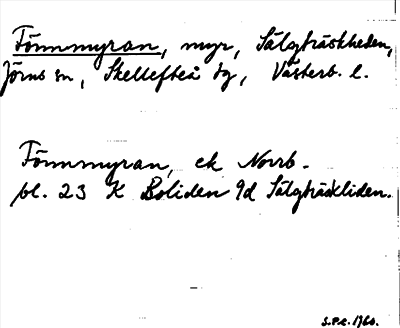 Fönnmyran, myr, Sälgträskheden,
Jörns sn, Skellefteå tg, Västerb. l.
Fönnmyran, ek Norrb.
bl. 23 K Boliden 9d Sälgträskliden.
S.P.C. 1960.